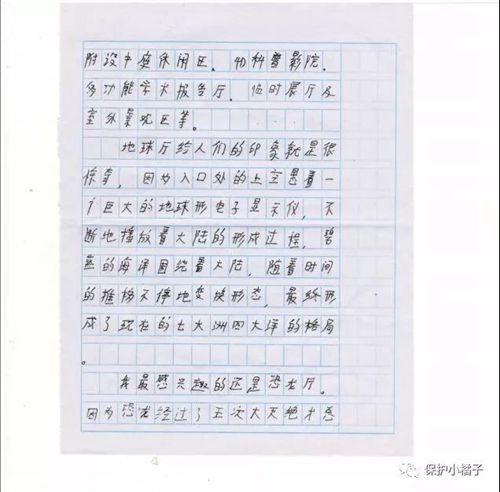 附设中庭休闲区、4D科普影院、
多功能学术报告厅、临时展厅及
室外景观区等。
地球厅给人们的印象就是很
惊奇，因为入口处的上空悬着一
个巨大的地球形电子显示仪，不
断地播放着大陆的形成过程，碧
蓝的海洋围绕着大陆，随着时间
的推移不停地变换形态，最终形
成了现在的七大洲四大洋的格局
。
我最感兴趣的还是恐龙厅。
因为恐龙经过了五次大灭绝才
保护小橘子